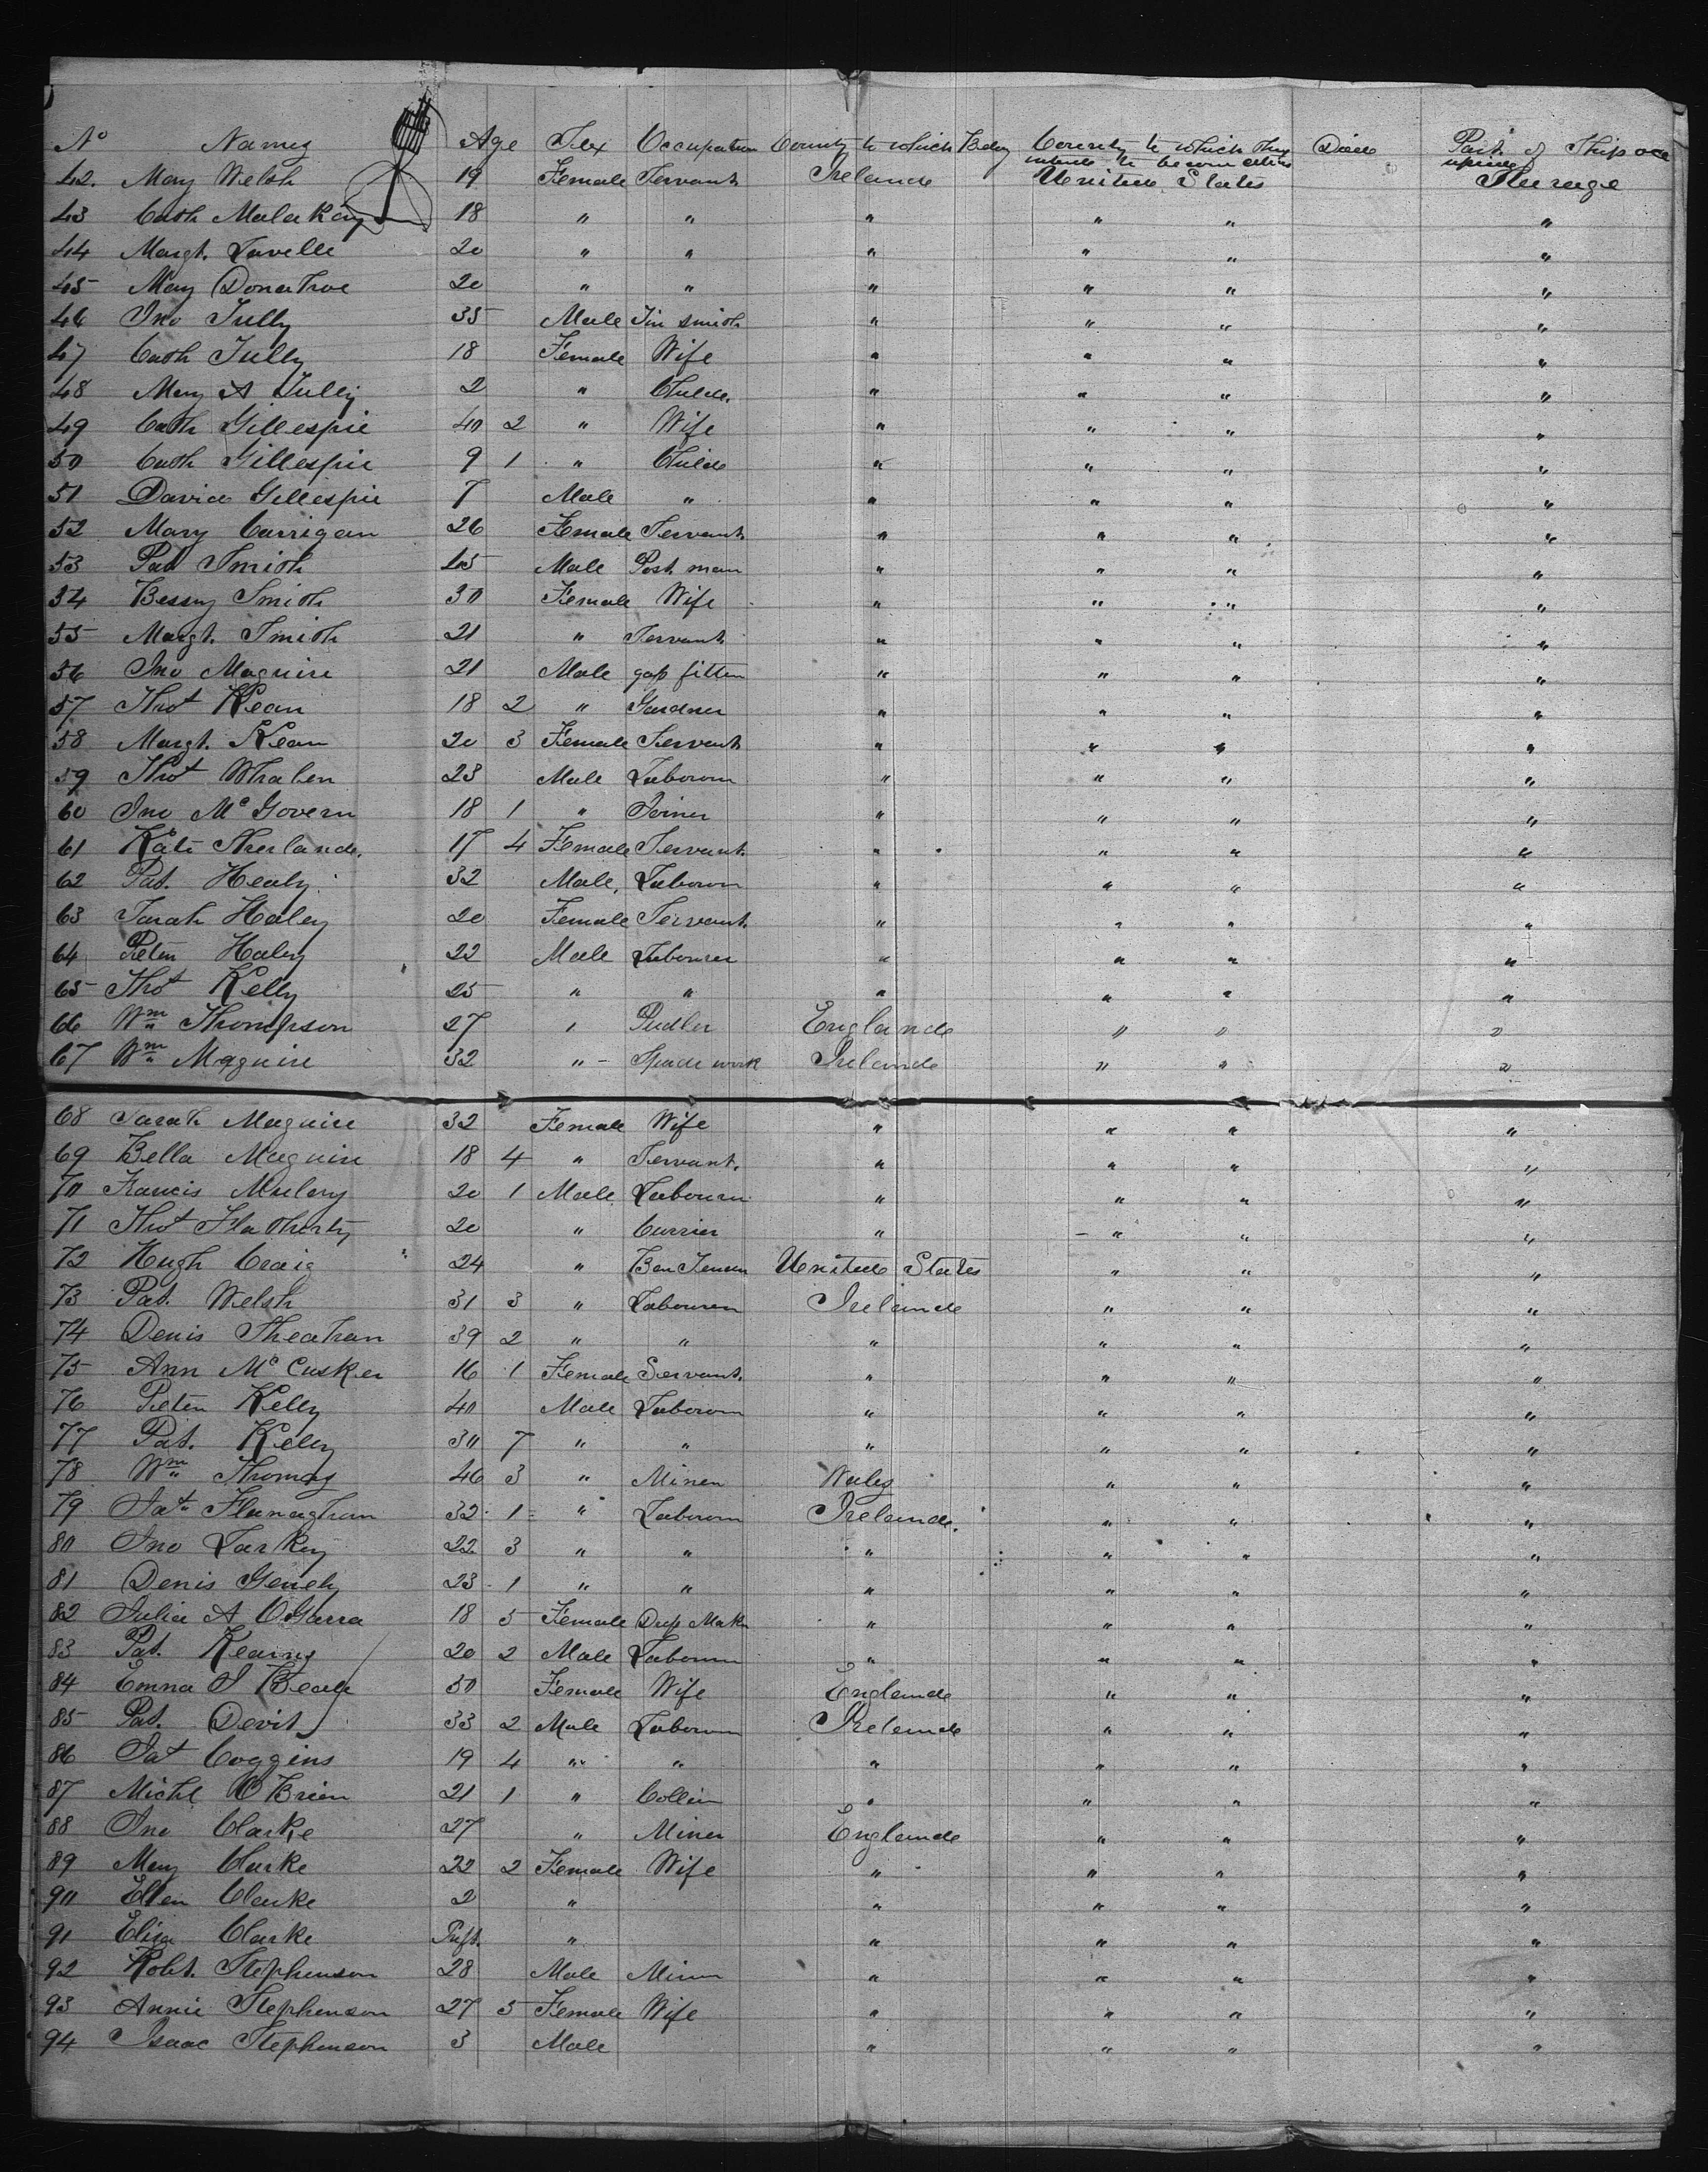 No Names Age Sex Occupation County to which Belong Country to which they intends to become citizens Died Part of Ship occupied
42. Mary Welsh 19 Female Servant Ireland United States Steerage
43 Cath 18 " " " " " "
44 Margt. Lavelle 20 " " " " " "
45 Mary Donahoe 20 " " " " " "
46 Jno Tully 35 Male Tin smith " " " "
47 Cath Tully 18 Female Wife " " " "
48 Mary A Tully 2 " Child. " " " "
49 Cath Gillespie 40 2 " Wife " " " "
50 Cath Gillespie 9 1 " Child " " " "
51 David Gillespie 7 Male " " " " "
52 Mary Carrigan 26 Female Servant " " " "
53 Pat Smith 45 Male Post man " " " "
54 Bessy Smith 30 Female Wife " " " "
55 Margt. Smith 21 " Servant " " " "
56 Jno Maguire 21 Male gas fitter " " " "
57 Thos Kean 18 2 " Gardner " " " "
58 Margt. Kean 20 3 Female Servant " " " "
59 Thos Whalen 23 Male Labourer " " " "
60 Jno Mc Govern 18 1 " Joiner " " " "
61 Kate 17 4 Female Servant. " " " "
62 Pat. Healy 32 Male, Labourer " " " "
63 Sarah Haley 20 Female Servant. " " " "
64 Peter Haley 22 Male Labourer " " " "
65 Thos Kelly 25 " " " " " "
66 Wm Thompson 27 " Pudler England " " "
67 Wm Maguire 32 " Spade work Ireland " " "
68 Sarah Maguire 32 Female Wife " " " "
69 Bella Maguire 18 4 " Servant. " " " "
70 Francis 20 1 Male Labourer " " " "
71 Thos Flatherty 20 " Currier " " " "
72 Hugh Craig 24 " United States " " "
73 Pat. Welsh 31 3 " Labourer Ireland " " "
74 Denis Sheahan 39 2 " " " " " "
75 Ann Mc Cusker 16 1 Female Servant. " " " "
76 Peter Kelly 40 Male Labourer " " " "
77 Pat. Kelly 30 7 " " " " " "
78 Wm Thomas 46 3 " Miner Wales " " "
79 Flanaghan 32 1 " Labourer Ireland. " " "
80 Jno Larkey 22 3 " " " " " "
81 Denis 23 1 " " " " " "
82 Julia A O'Garra 18 5 Female Dress Makr " " " "
83 Pat. Kearns 20 2 Male Labourer " " " "
84 Emma J Beale 50 Female Wife England " " "
85 Pat. Devit 33 2 Male Labourer Ireland " " "
86 Pat Coggins 19 4 " " " " " "
87 Michl O'Brien 21 1 " Collier " " " "
88 Jno Clarke 27 " Miner England " " "
89 Mary Clarke 22 2 Female Wife " " " "
90 Ellen Clarke 2 " " " " "
91 Eliza Clarke Inft. " " " " "
92 Robt. Stephenson 28 Male Miner " " " "
93 Annie Stephenson 27 5 Female Wife " " " "
94 Isaac Stephenson 3 Male " " " "